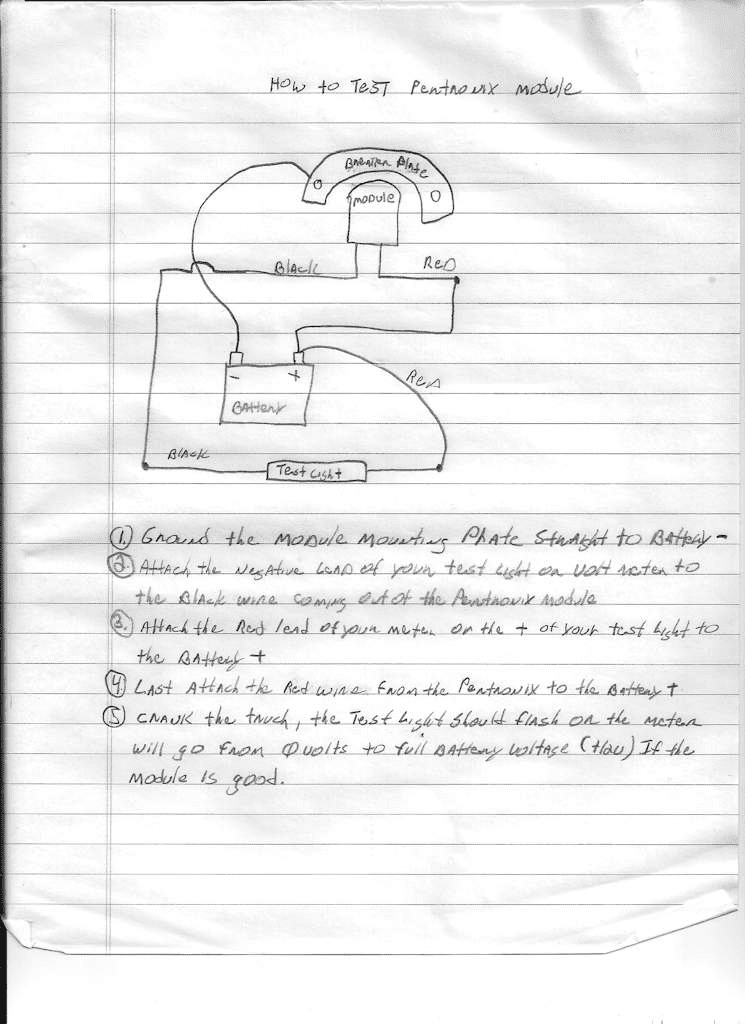 How to Test Pentronix module
Breaker Plate
module
Black
Red
- +
Battery
Red
Black
Test Light
1. Ground the Module Mounting Plate Straight to Battery -
2. Attach the Negative Lead of your test Light or Volt meter to
the Black wire coming out of the Pentronix Module
3. Attach the Red lead of your meter or the + of your test light to
the Battery +
4. Last Attach the Red wire from the Pentronix to the Battery +
5 Crank the truck, the Test Light should flash or the meter
will go from 0 volts to full Battery voltage (12v) If the
Module is good.